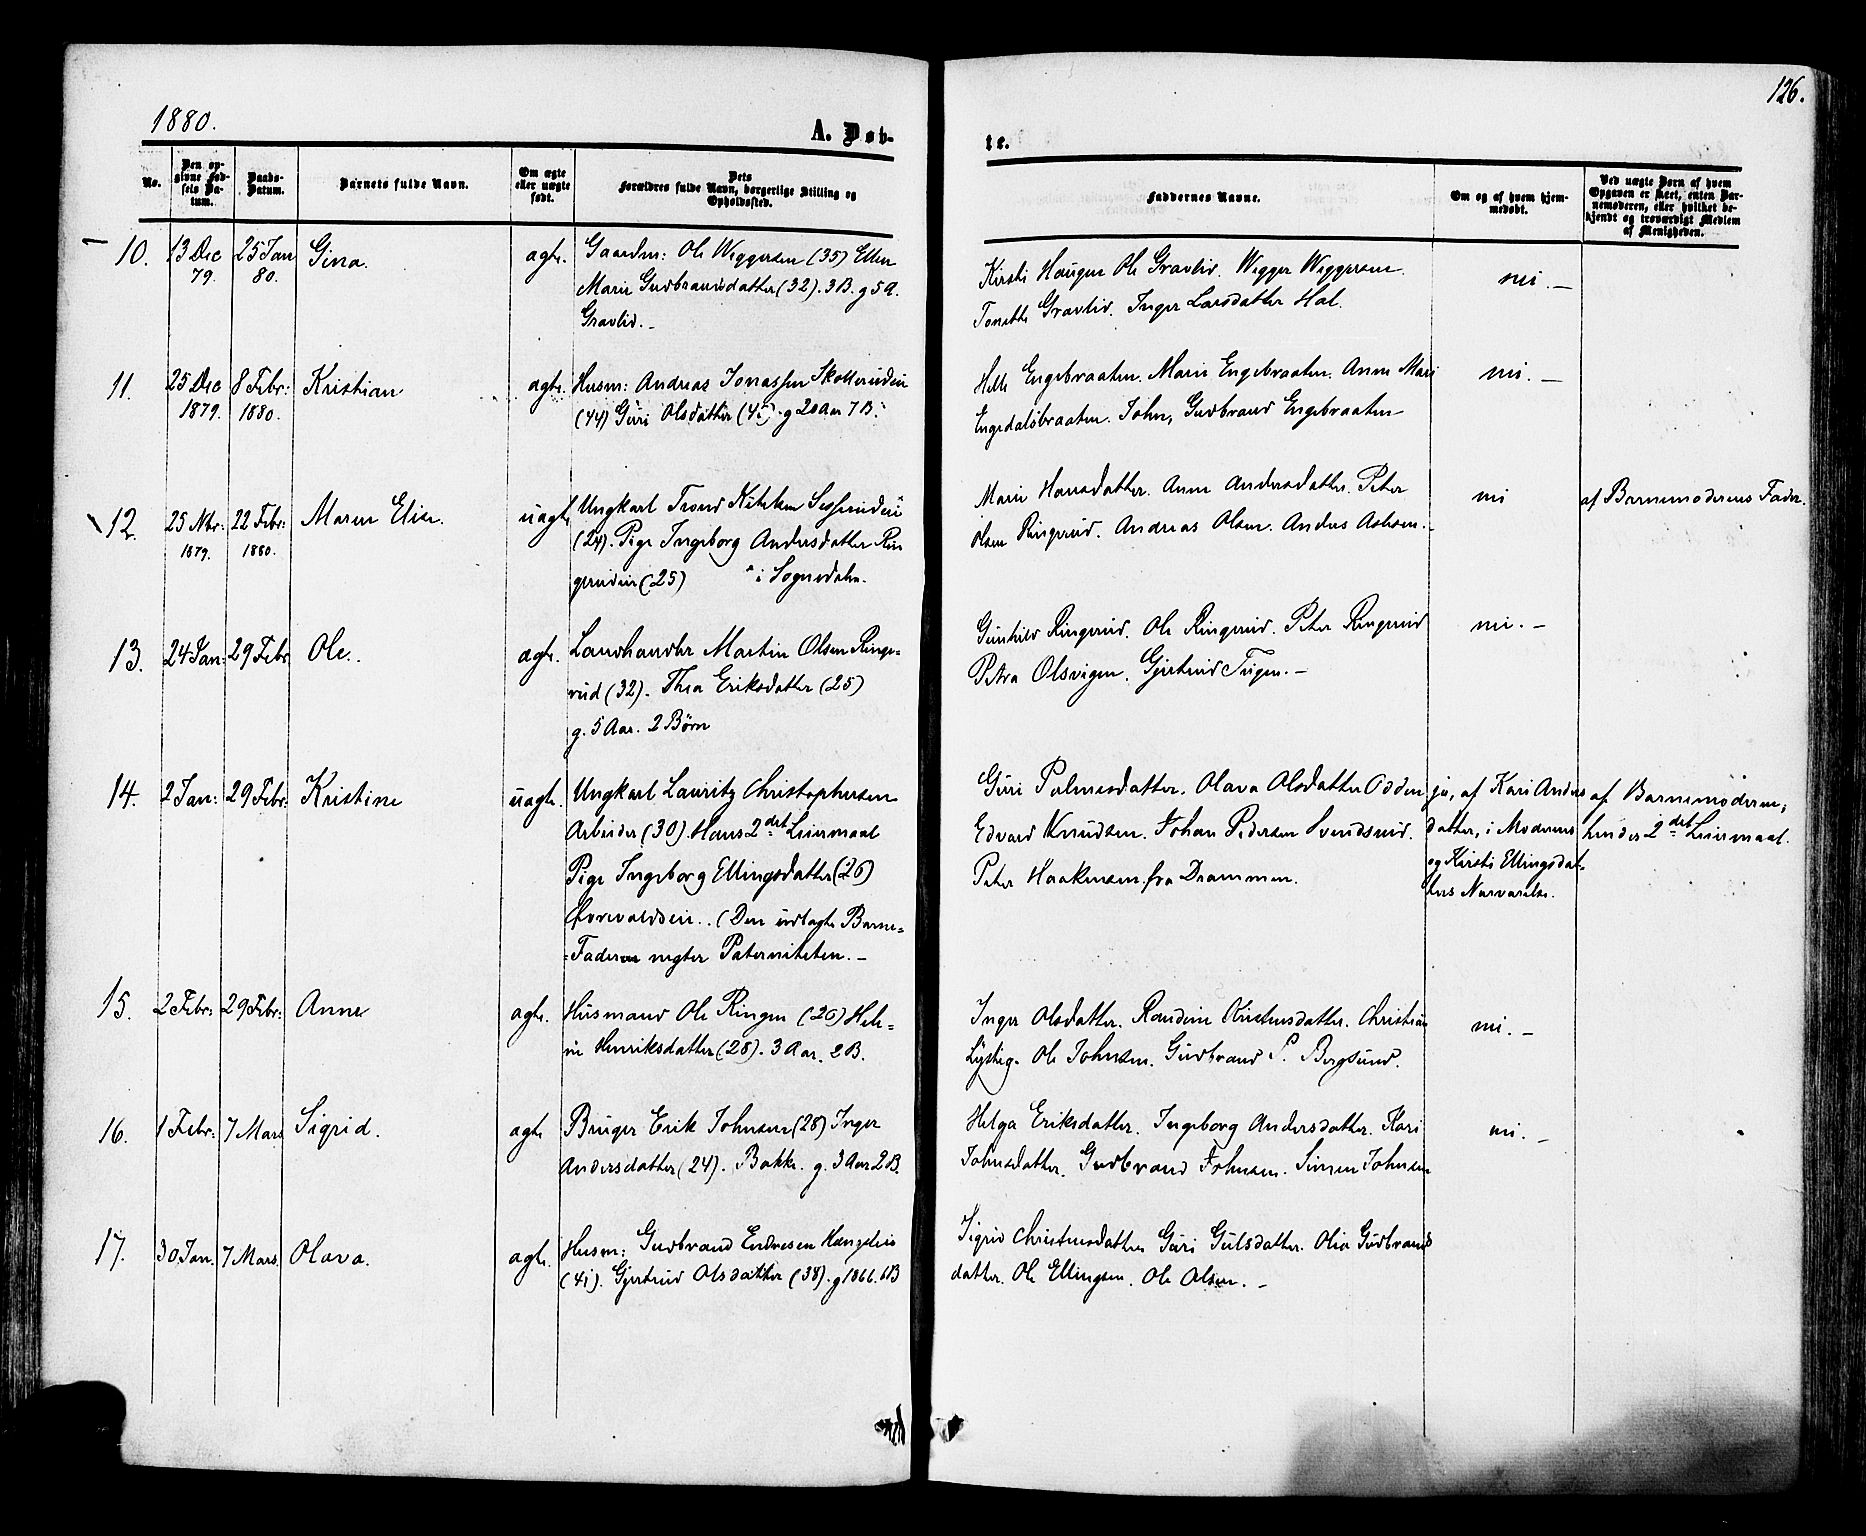 1880.
A. Døb-
No.
Den op-
givne Fød-
sels Da-
tum.
Daabs-
Datum.
Barnets fulde Navn.
Om ægte
eller uægte
født.
Dets
Forældres fulde Navn, borgerlige Stilling og
Opholdssted.
10.
13 Dec
79.
25 Jan
80.
Gina.
ægte.
Gaardm: Ole Wiggersen (35) Ellen
Marie Gudbrandsdatter (32). 3 B. g 5 A.
Gravlid.
11.
25 Dec
1879.
8 Febr:
1880.
Kristian
ægte.
Husm: Andreas Jonassen
(44) Guri Olsdatter g 20 Aar 7 B.
12.
25 Nbr:
1879.
22 Febr:
1880.
Maren Elise.
uægte
Ungkarl Trond
(24). Pige Ingeborg Andersdatter Rin
gerudeie (25) i Sognedalen.
13.
24 Jan:
29 Febr.
Ole.
ægte.
Landhandler Martin Olsen Ringe-
rud (32). Thea Eriksdatter (25)
g. 5 Aar. 2 Børn
14.
2 Jan:
29 Febr:
Kristine
uægte.
Ungkarl Lauritz Christophersen
Arbeider (30). Hans 2det Leiermaal
Pige Ingeborg Ellingsdatter (26)
(Den udlagte Barne-
-Fader negter Paterniteten. -
15.
2 Febr:
29 Febr:
Anne
ægte.
Husmand Ole Ringen (26) Hele-
ne Henriksdatter (28). 3 Aar. 2 B.
16.
1 Febr:
7 Mars
Sigrid.
ægte
Bruger Erik Johnsen (28) Inger
Andersdatter (24). Bakke. g. 3 Aar 2 B.
17.
30 Jan.
7 Mars.
Olava.
ægte.
Husm: Gudbrand Endresen
(41). Gjertrud Olsdatter (38). g 1866. 6B
126.
te.
Faddernes Navne.
Om og af hvem hjem-
medøbt.
Ved uægte Børn af hvem
Opgaven er sket, enten Bar-
nemoderen, eller hvilket be-
kjendt og troværdigt Medlem
af Menigheden.
Kirsti Haugen Ole Gravlid. Wigger Wiggersen.
Tonette Gravlid. Inger Larsdatter Hal.
nei. -
Helle Engebraaten. Marie Engebraaten. Anne Mari
Engedalsbraaten. John, Gudbrand Engebraaten
nei. -
Marie Hansdatter. Anne Andersdatter. Peter
Olsen Ringerud. Andreas Olsen. Anders
nei
af Barnemoderens Fader.
Gunhild Ringerud. Ole Ringerud. Peter Ringerud
Petra Olsvigen. Gjertrud -
nei. -
Guri Palmesdatter. Olava Olsdatter Odden
Edvard Knudsen. Johan Pedersen Svendsrud.
Peter Haakensen fra Drammen.
ja, af Kari Anders
datter, i Moderens
og Kirsti Ellingsdat-
ters Nærværelse.
af Barnemoderen,
hendes 2det Leiermaal.
Inger Olsdatter. Randine Kristensdatter. Christian
Lystig. Ole Johnsen. Gudbrand P. Bergsund.
nei. -
Helga Eriksdatter. Ingeborg Andersdatter. Kari
Johnsdatter. Gudbrand Johnsen. Simen Johnsen
nei. -
Sigrid Christensdatter Guri Gulsdatter. Olia Gudbrands
datter. Ole Ellingsen. Ole Olsen. -